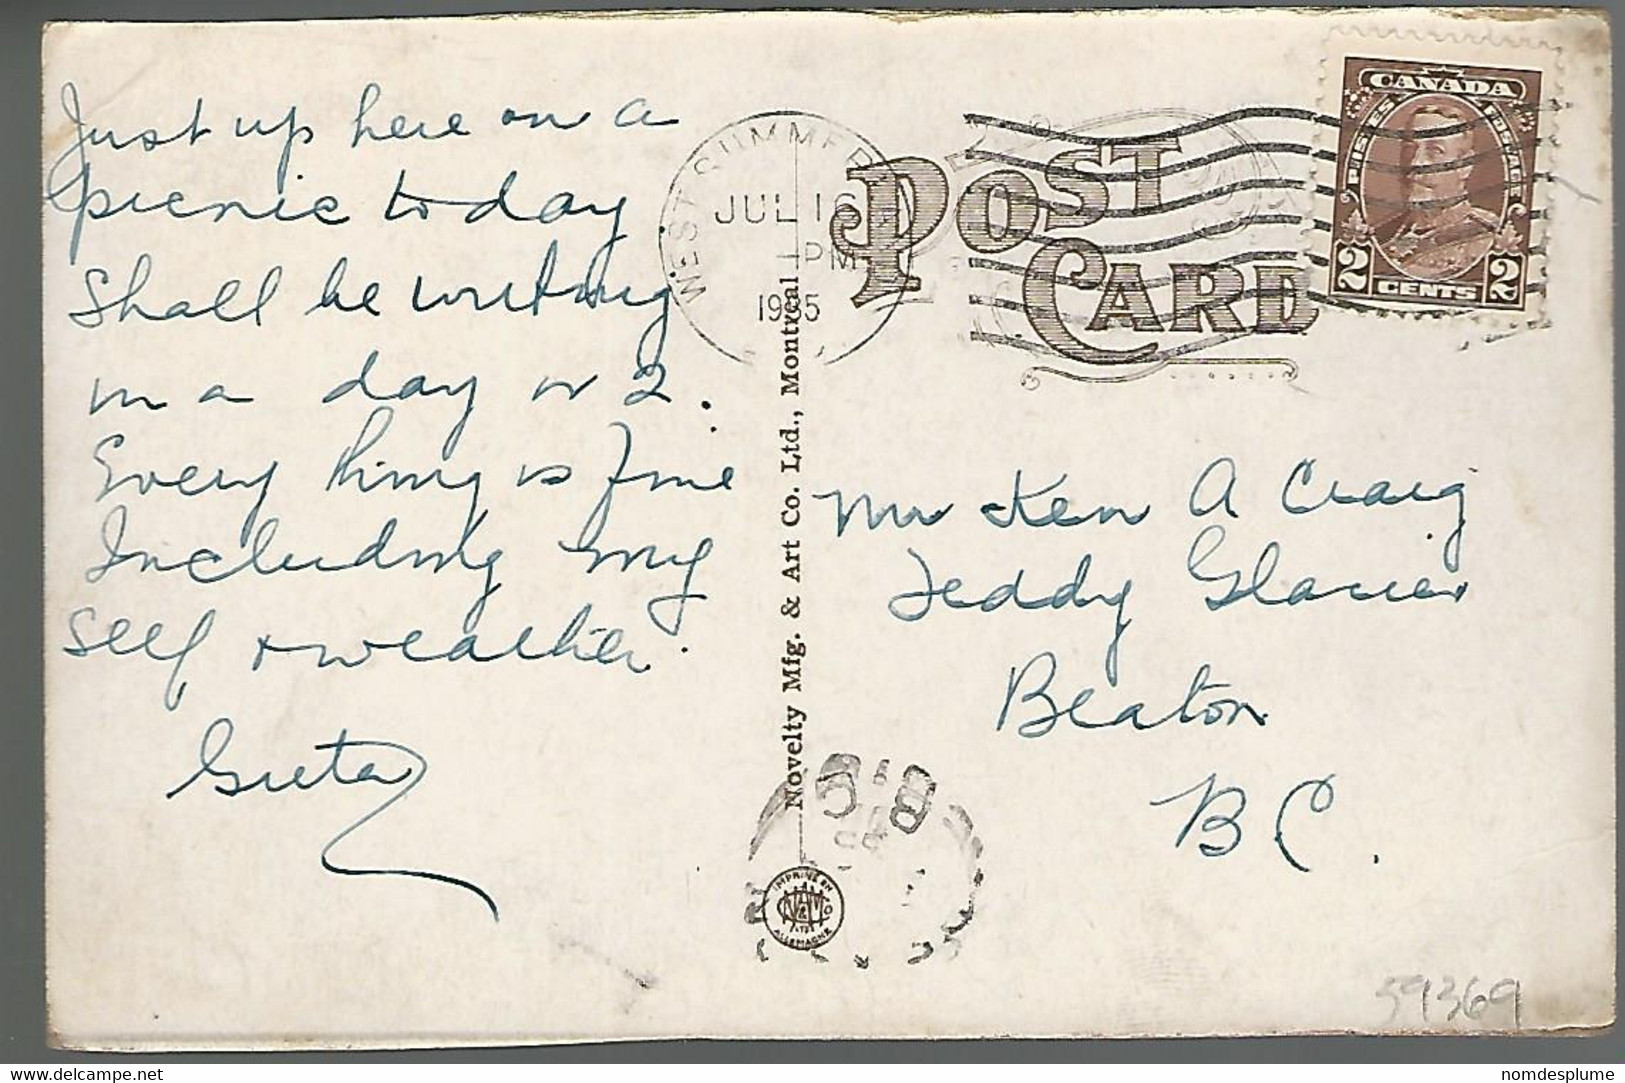 Just up here on a
picnic today
Shall be writing
in a day or 2.
Every thing is fine
Including my
self & weather.
Greta
WEST SUMMER
JUL 16
PM
1935
POST
CARD
CANADA
POSTES POSTAGE
2 CENTS 2
Novelty Mfg. & Art Co. Ltd., Montreal
Mr Ken A Craig
Teddy Glacier
Beaton
B C.
B.C
IMPRIMÉ EN
ALLEMAGNE
59369
delcampe.net
nomdesplume